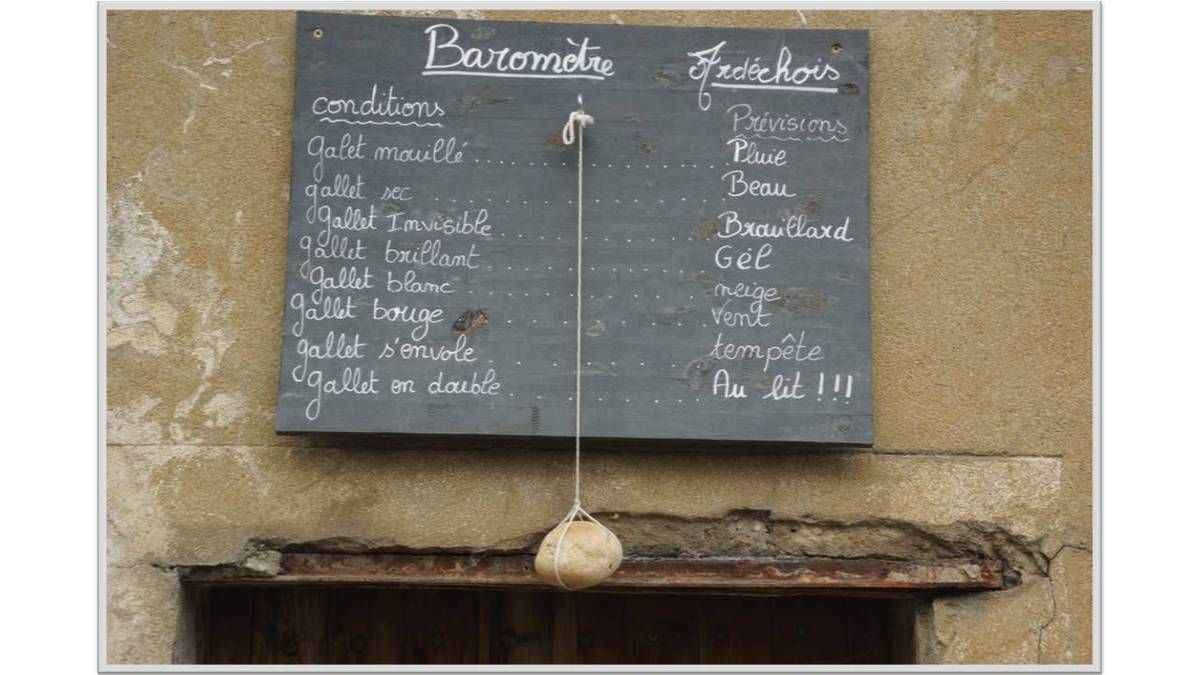 Baromètre Ardéchois
conditions Prévisions
Galet mouillé.................... Pluie
gallet sec .................... Beau
gallet Invisible.................... Brouillard
gallet brillant.................... Gél
gallet blanc.................... neige
gallet bouge.................... Vent
gallet s'envole.................... tempête
gallet en double.................... Au lit !!!